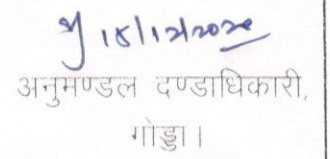 18/12/2020
अनुमण्डल दण्डाधिकारी,
गोड्डा।